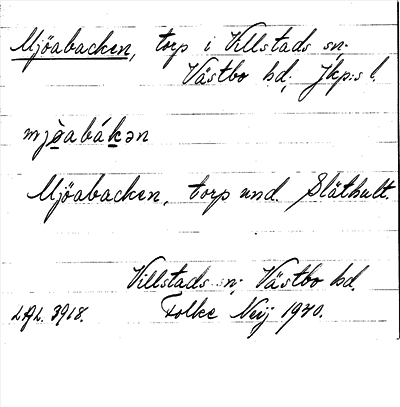 Mjöabacken, torp i Villstads sn;
Västbo hd; Jkp:s l.
mjö̀abákən
Mjöabacken, torp und. Släthult.
Villstads sn; Västbo hd.
LAL. 3918. Folke Nij 1940.